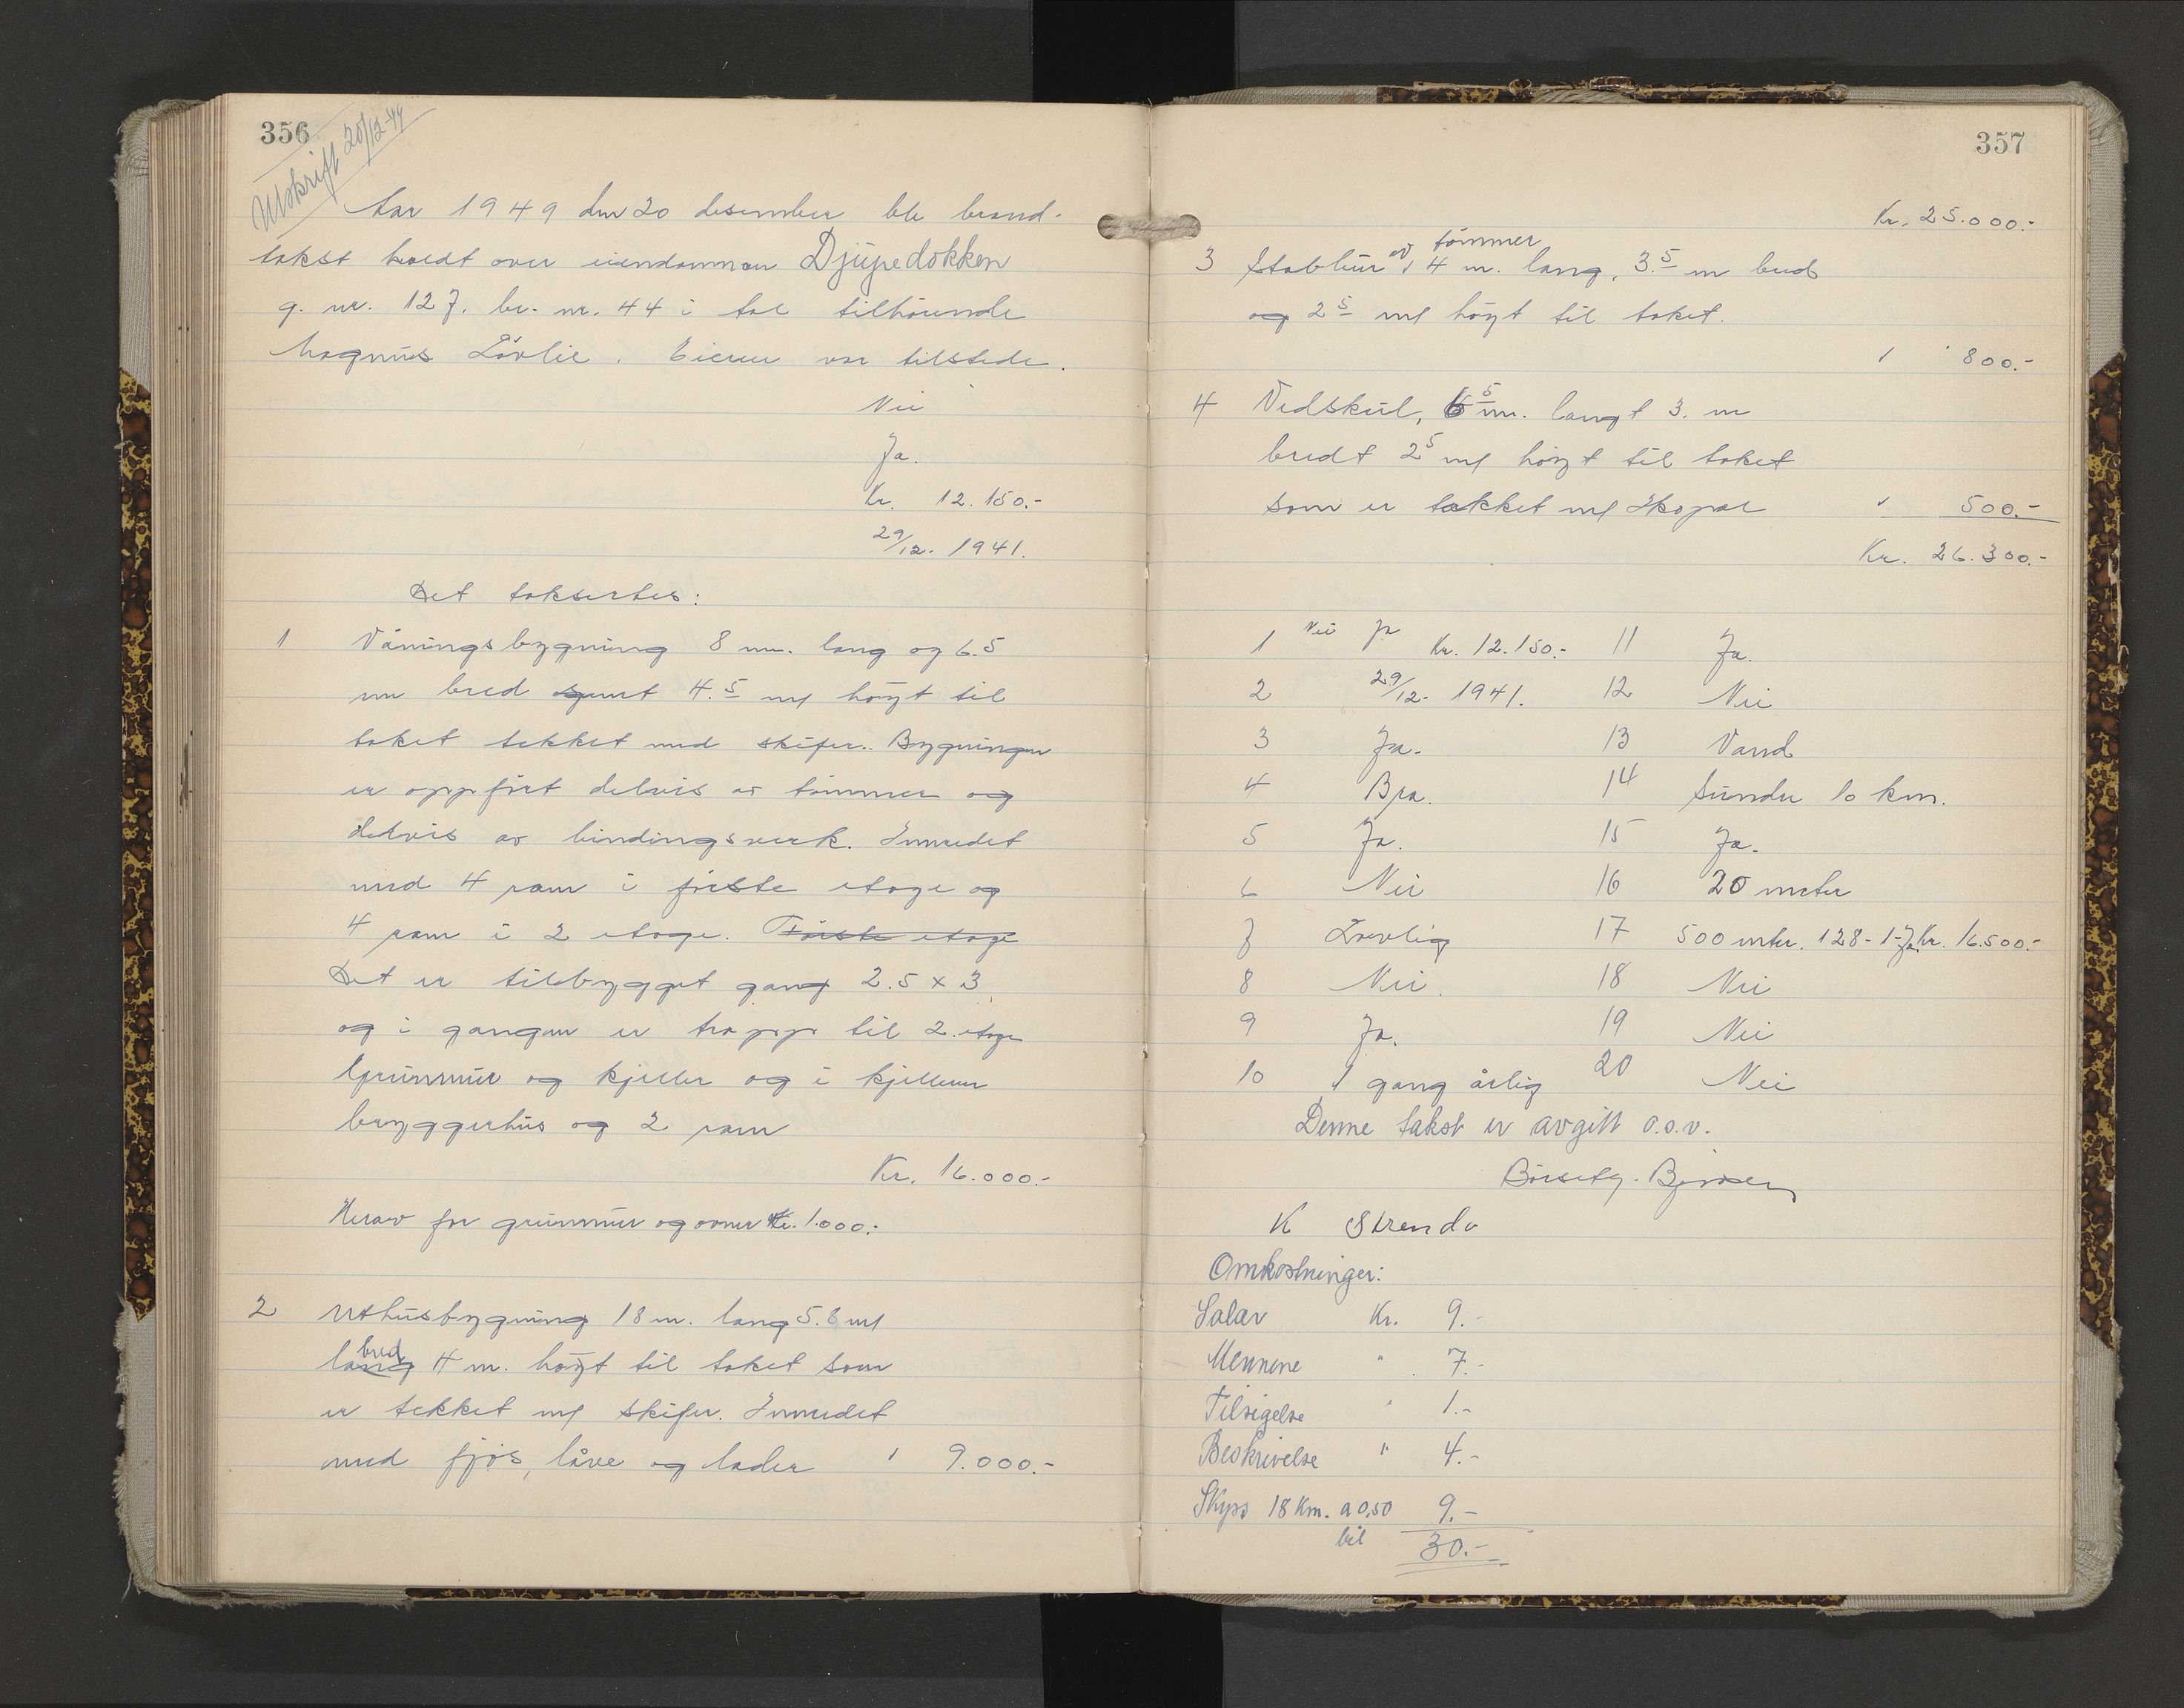 356
Utskrift 20/12-49
Aar 1949 den 20 desember ble brand-
takst holdt over eiendommen Djupedokken
g. nr. 127. br. nr. 44 i Aal tilhörende
Magnus Lövlie. Eieren var tilstede.
Nei
Ja.
Kr. 12.150.-
29/12. 1941.
Det taksertes:
1 Våningsbygning 8 m. lang og 6.5
m bred samt 4.5 m höyt til
taket tekket med skifer. Bygningen
er oppfört delvis av tömmer og
delvis av bindingsverk. Innredet
med 4 rom i förste etage og
4 rom i 2 etage. Förste etage
Det er tilbygget gang 2.5 x 3
og i gangen er trapp til 2. etage
Grunnmur og kjeller og i kjelleren
bryggerhus og 2 rom
Kr. 16.000.-
Herav for grunnmur og ovner Kr. 1.000.-
2 Uthusbygning 18 m. lang 5.8 m
lang bred 4 m. höyt til taket som
er tekket m/ skifer. Innredet
med fjös, låve og lader " 9.000.-
357
Kr. 25.000.-
3 Stabbur av tömmer 4 m. lang, 3.5 m bred
og 2.5 m höyt til taket.
" 800.-
4 Vedskul, 6.5 m. langt 3. m
bredt 2.5 m höyt til taket
som er takket m/ Ikopal " 500.-
Kr. 26.300.-
1 Nei Ja Kr. 12.150.- 11 Ja.
2 29/12. 1941. 12 Nei
3 Ja. 13 Vand
4 Bra. 14 Sundre 10 km.
5 Ja. 15 Ja.
6 Nei 16 20 meter
7 Lovlig 17 500 meter. 128-1-Ja. Kr. 16.500.-
8 Nei. 18 Nei
9 Ja. 19 Nei
10 1 gang årlig 20 Nei
Denne takst er avgitt o.s.v.
K Strenda
Omkostninger:
Salær Kr. 9.-
Mennene " 7.-
Tilsigelse " 1.-
Beskrivelse " 4.-
Skyss 18 Km. a 0,50 9.-
bil 30.-